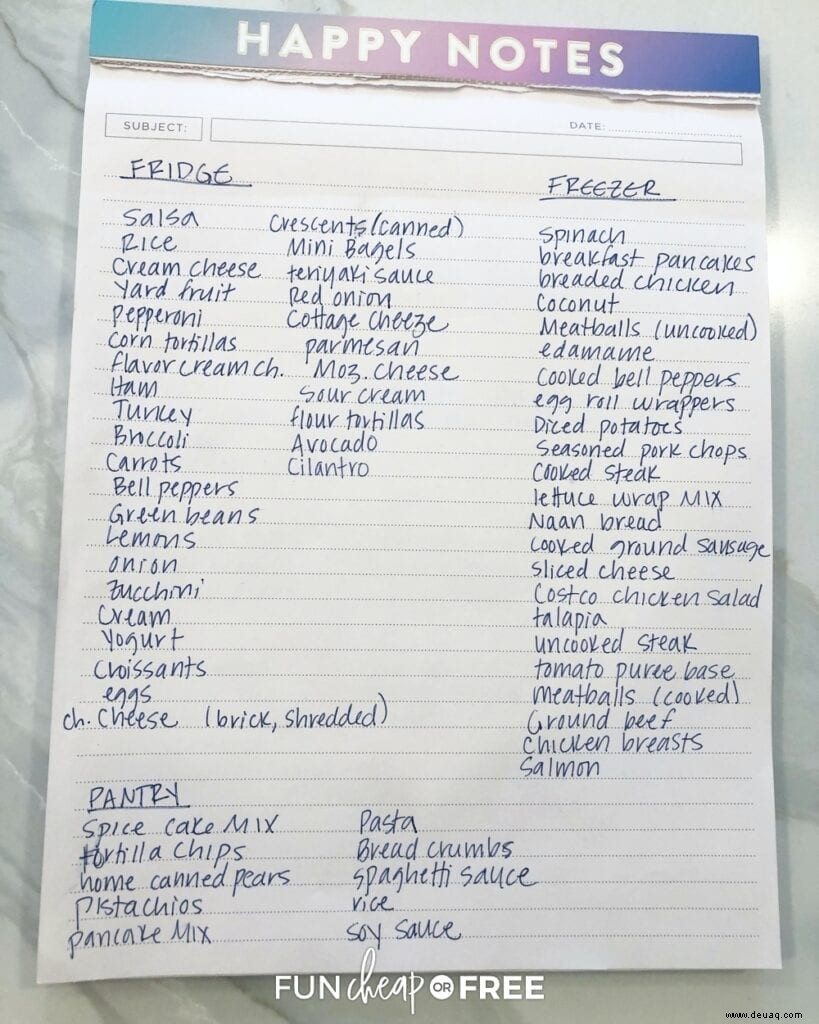 HAPPY NOTES
SUBJECT:
DATE:
FRIDGE
Salsa
Rice
Cream cheese
Yard fruit
Pepperoni
Corn tortillas
flavor cream ch.
Ham
Turkey
Broccoli
Carrots
Bell peppers
Green beans
Lemons
onion
Zucchini
Cream
Yogurt
Croissants
eggs
ch. Cheese (brick, shredded)
Crescents (canned)
Mini Bagels
teriyaki sauce
Red onion
Cottage cheeze
parmesan
Moz. cheese
sour cream
flour tortillas
Avocado
Cilantro
FREEZER
Spinach
breakfast pancakes
breaded chicken
Coconut
Meatballs (uncooked)
edamame
Cooked bell peppers
egg roll wrappers
Diced potatoes
Seasoned pork chops
Cooked steak
lettuce wrap Mix
Naan bread
cooked ground sausage
sliced cheese
Costco chicken salad
talapia
uncooked steak
tomato puree base
Meatballs (cooked)
Ground beef
Chicken breasts
Salmon
PANTRY
Spice cake Mix
tortilla chips
home canned pears
Pistachios
pancake Mix
Pasta
Bread crumbs
spaghetti sauce
rice
soy sauce
FUN cheap OR FREE
www.deuaq.com